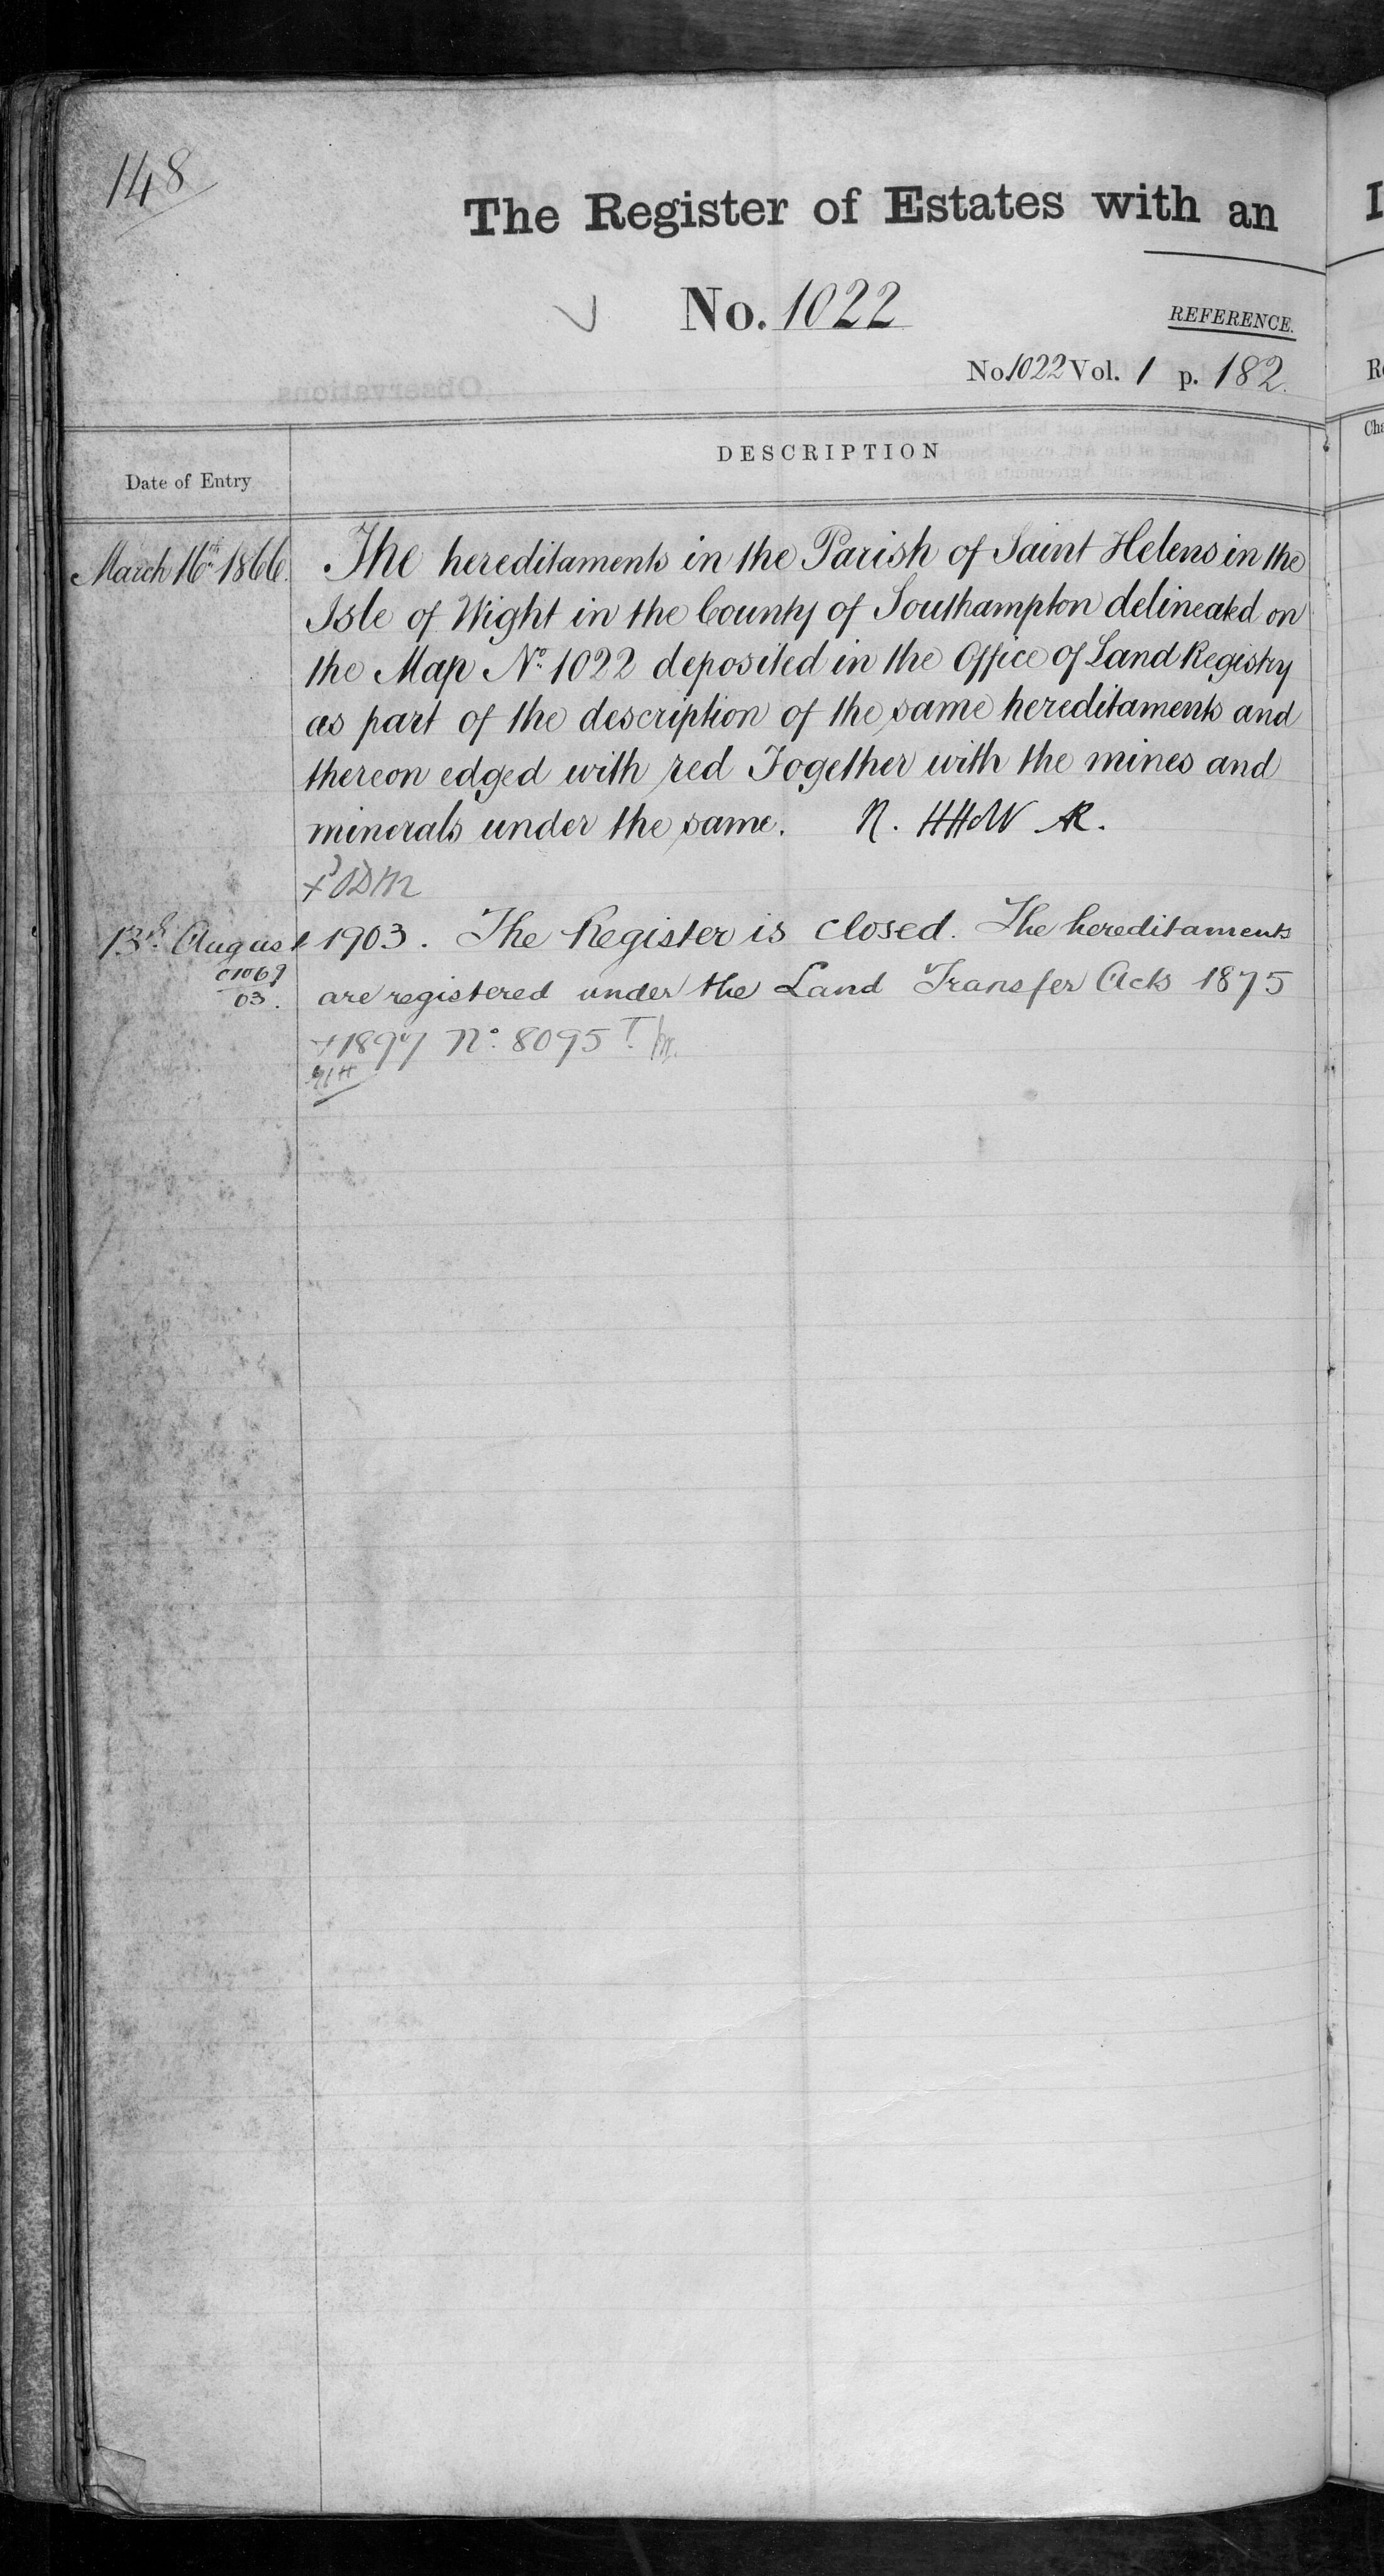 148
The Register of Estates with an
No. 1022
REFERENCE.
No 1022 Vol. 1 p. 182.
Date of Entry
DESCRIPTION
March 16th 1866. The hereditaments in the Parish of Saint Helens in the
Isle of Wight in the County of Southampton delineated on
the Map No. 1022 deposited in the Office of Land Registry
as part of the description of the same hereditaments and
thereon edged with red Together with the mines and
minerals under the same. R. HHW AR.
13th August 1903. The Register is closed. The hereditaments
C1069
03.
are registered under the Land Transfer Acts 1875
+ 1897 No. 8095